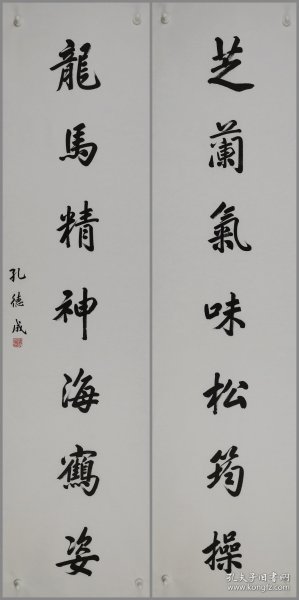 芝蘭氣味松筠操
龍馬精神海鶴姿
孔德成
孔夫子旧书网